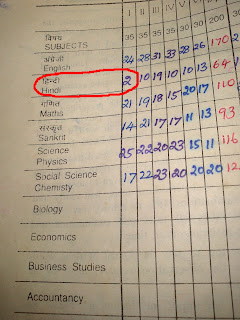 II III IV V
विषय
SUBJECTS 35 35 35 35 30 30 200
अंग्रेजी
English 24 28 31 33 28 26 170
हिन्दी
Hindi 2 10 19 10 10 13 64
गणित
Maths 21 19 18 15 20 17 110
संस्कृत
Sankrit 14 21 17 17 11 13 93
Science
Physics 25 22 20 23 15 11 116
Social Science
Chemisty 17 22 23 20 20 20
Biology
Economics
Business Studies
Accountancy